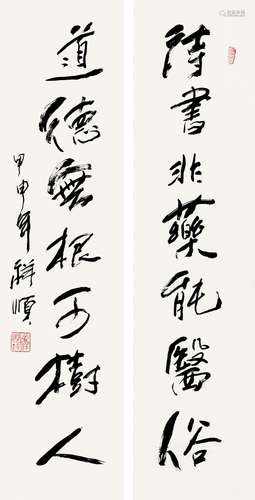 诗書非藥能醫俗
道德無根可樹人
甲申年 祥順